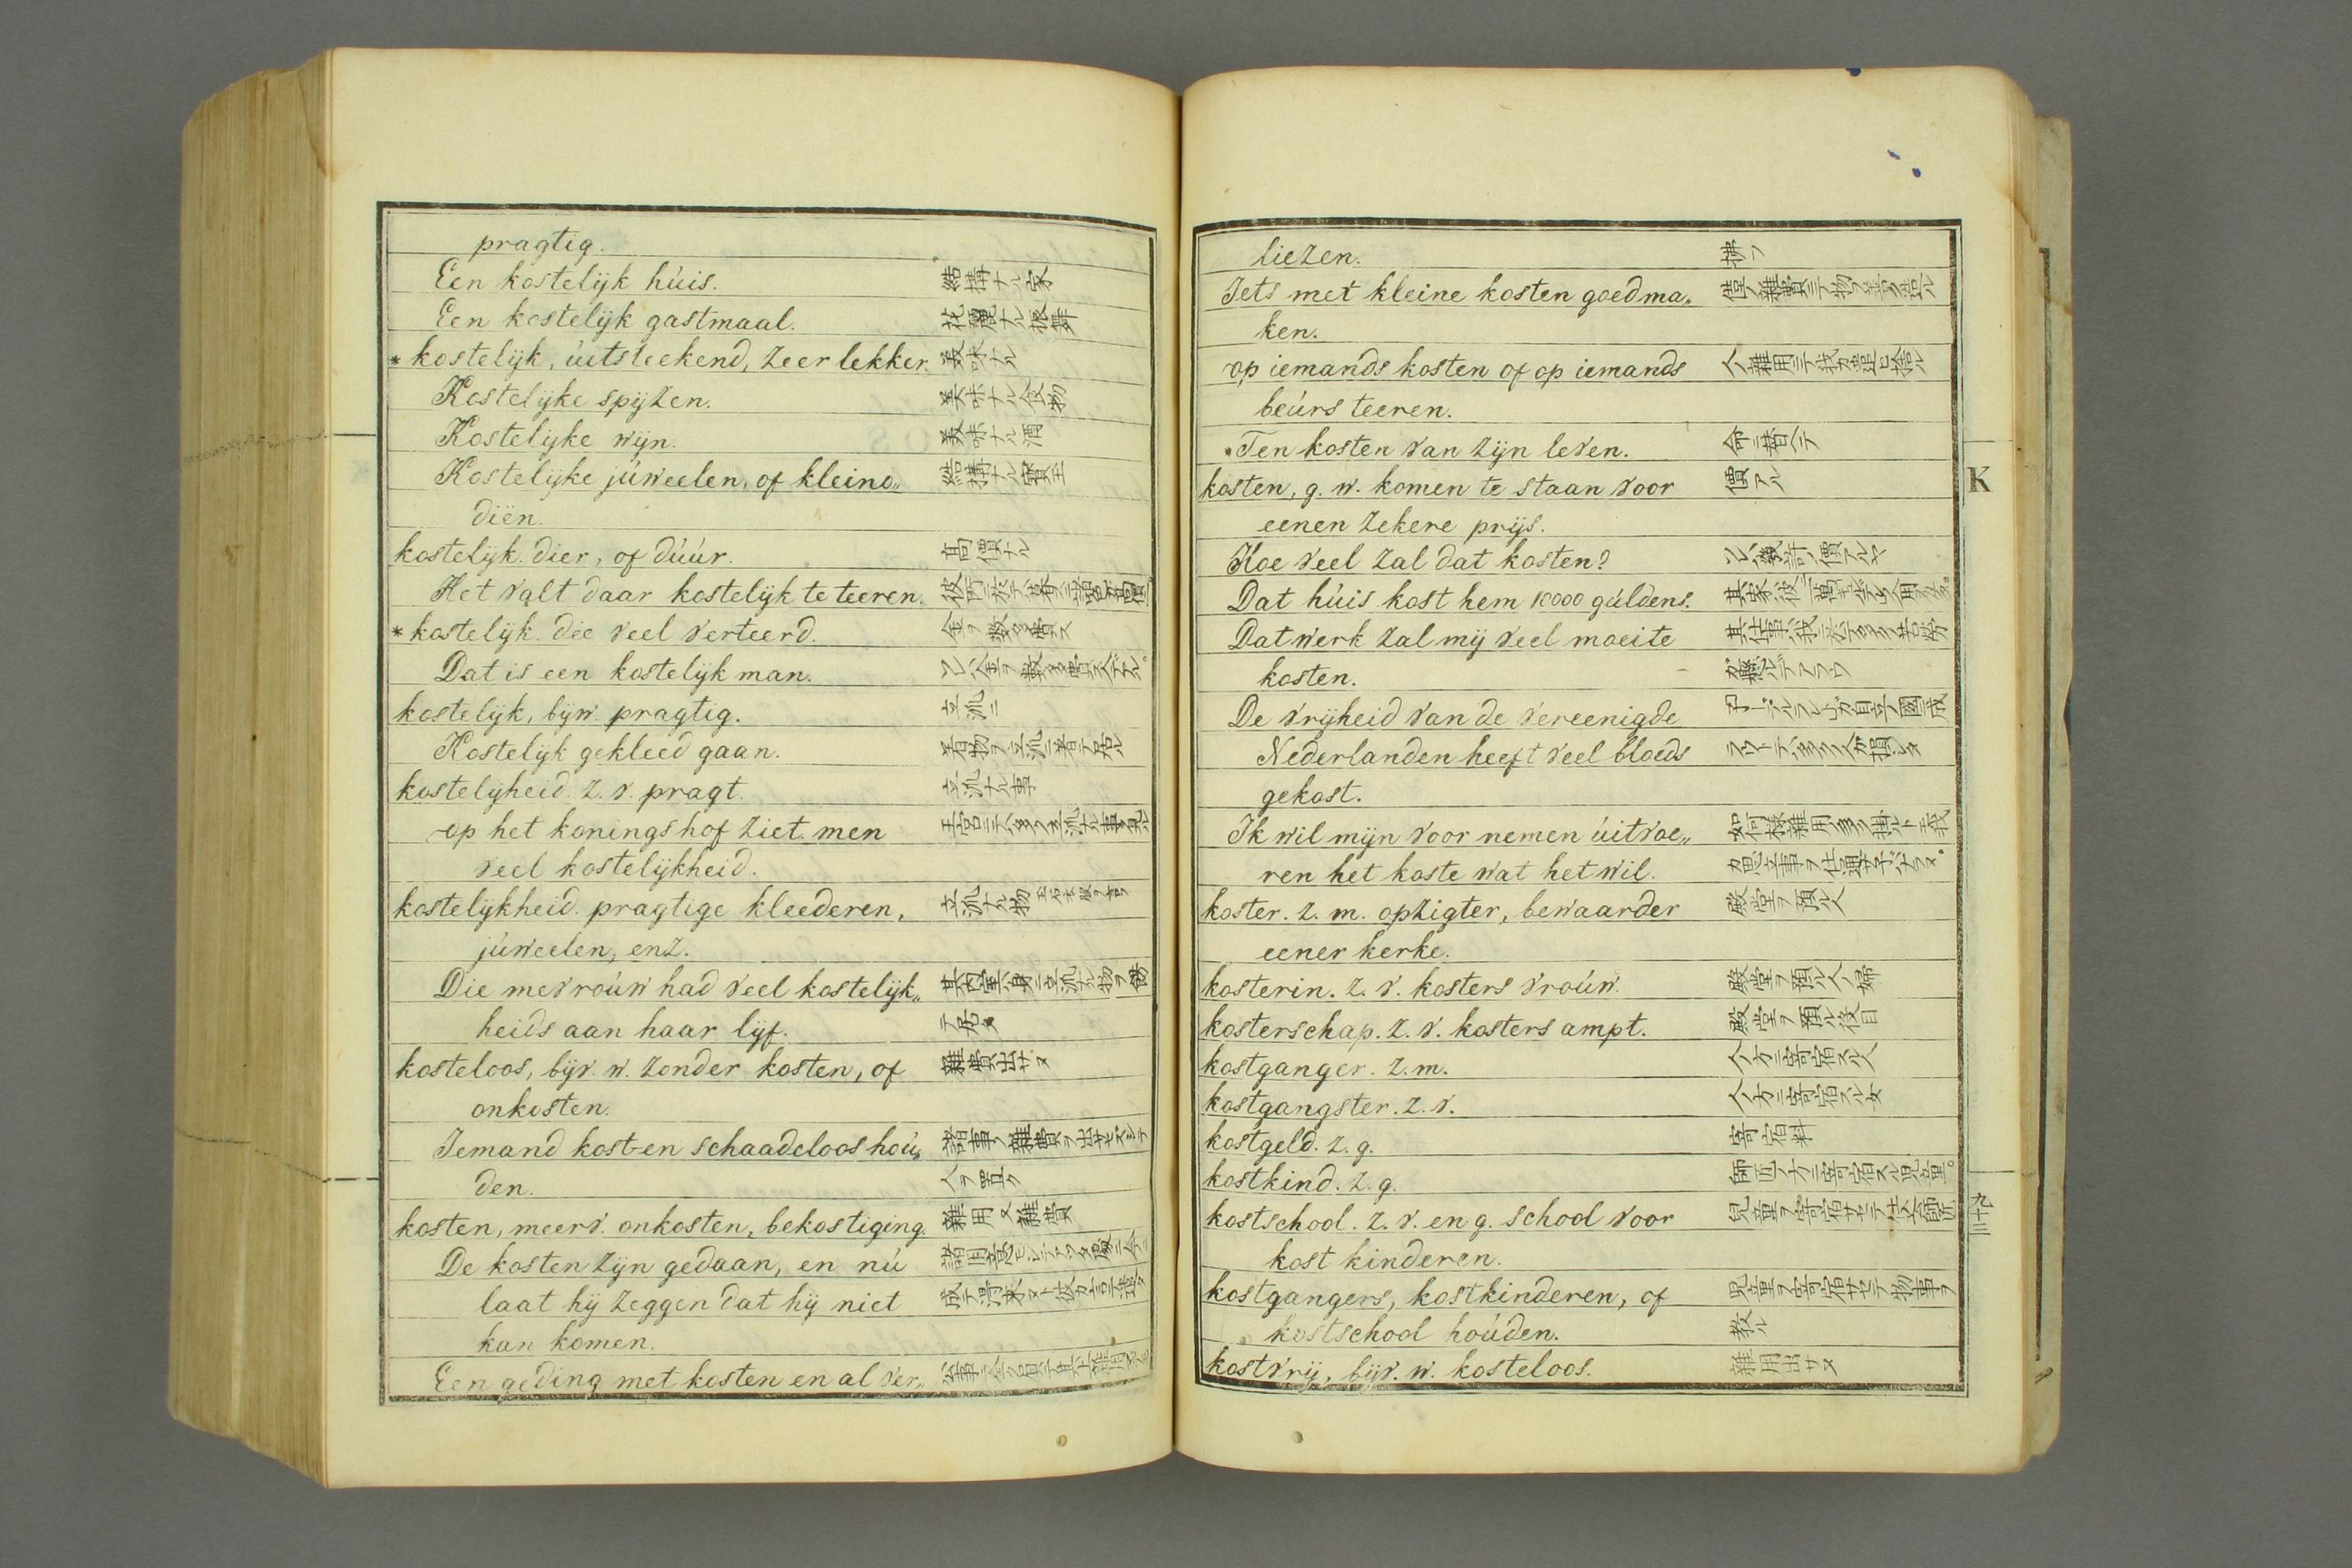 pragtig.
Een kostelijk húis. 結構ナル家
Een kostelijk gastmaal. 花麗ナル振舞
* kostelijk, úitsteekend, zeer lekker. 美味ナル
Kostelijke spijzen. 美味ナル食物
Kostelijke wijn. 美味ナル酒
Kostelijke júweelen, of kleino„ 結構ナル寳玉
diën.
kostelijk. dier, of dúúr. 高價ナル
Het valt daar kostelijk te teeren.
* kostelijk. die veel verteerd. 金ヲ数多費ス
Dat is een kostelijk man.
kostelijk, bijw. pragtig. 立派ニ
Kostelijk gekleed gaan. 着物ヲ立派ニ着テ居ル
kostelijheid. z. v. pragt. 立派ナル事
op het konings hof ziet men
veel kostelijkheid.
kostelijkheid. pragtige kleederen, 立派ナル物
júweelen, enz.
Die mevroúw had veel kostelijk„
heids aan haar lijf. テ居タ
kosteloos, bijv. w. zonder kosten, of 雜費出サヌ
onkosten.
Iemand kost-en schaadeloos hoú„ 諸事ノ雜費ヲ出サセズシテ
den. 人ヲ置ク
kosten, meerv. onkosten, bekostiging. 雜用又雜費
De kosten zijn gedaan, en nú
laat hij zeggen dat hij niet
kan komen.
Een geding met kosten en al ver„
liezen. 拂フ
Iets met kleine kosten goedma„
ken.
op iemands kosten of op iemands
beúrs teeren.
* Ten kosten van zijn leven. 命ニ替ヘテ
kosten, g. w. komen te staan voor 價アル
eenen zekere prijs.
Hoe veel zal dat kosten?
Dat húis kost hem 10000 gúldens.
Dat werk zal mij veel moeite
kosten.
De vrijheid van de vereenigde
Nederlanden heeft veel bloeds
gekost.
Ik wil mijn voor nemen úitvoe„
ren het koste wat het wil.
koster. z. m. opzigter, bewaarder 殿堂ヲ預ル人
eener kerke.
kosterin. z. v. kosters vroúw. 殿堂ヲ預ル人ノ婦
kosterschap. z. v. kosters ampt. 殿堂ヲ預ル役目
kostganger. z. m. 人ノ方ニ寄宿スル人
kostgangster. z. v. 人ノ方ニ寄宿スル女
kostgeld. z. g. 寄宿料
kostkind. z. g. 師匠ノ方ニ寄宿スル児童
kostschool. z. v. en g. school voor
kost kinderen.
kostgangers, kostkinderen, of 児童ヲ寄宿サセテ物事ヲ
kostschool hoúden. 教ル
kostvrij, bijv. w. kosteloos. 雜用出サヌ
K